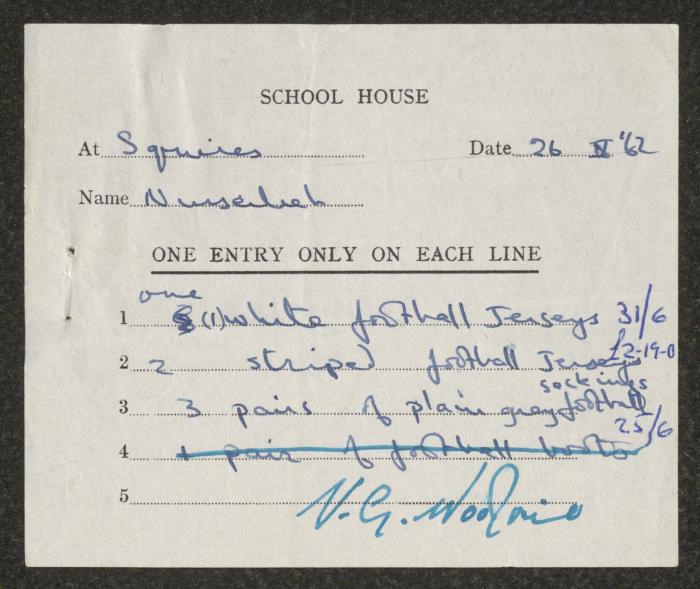 SCHOOL HOUSE
At Squires Date 26 IV '62
Name
ONE ENTRY ONLY ON EACH LINE
one
1 (1) white football Jerseys 31/6
2 2 striped football Jerseys £2-19-0
sockings
3 3 pairs of plain grey football 25/6
4 1 pair of football boots
5 V.G.